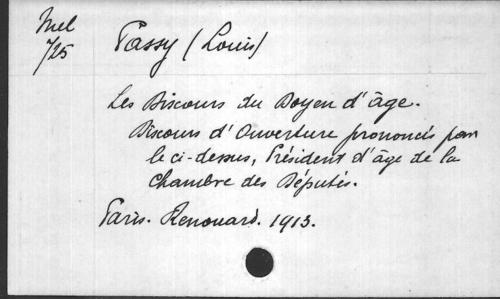 Mel
725
Passy (Louis)
Les Discours du Doyen d'âge.
Discours d'Ouverture prononcés par
le ci-dessus, Président d'âge de la
Chambre des Députés.
Paris. Renouard. 1913.